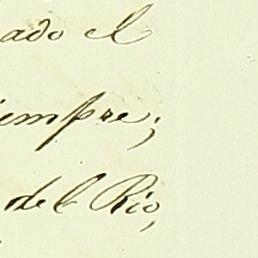 ado el
iempre;
del Rio,